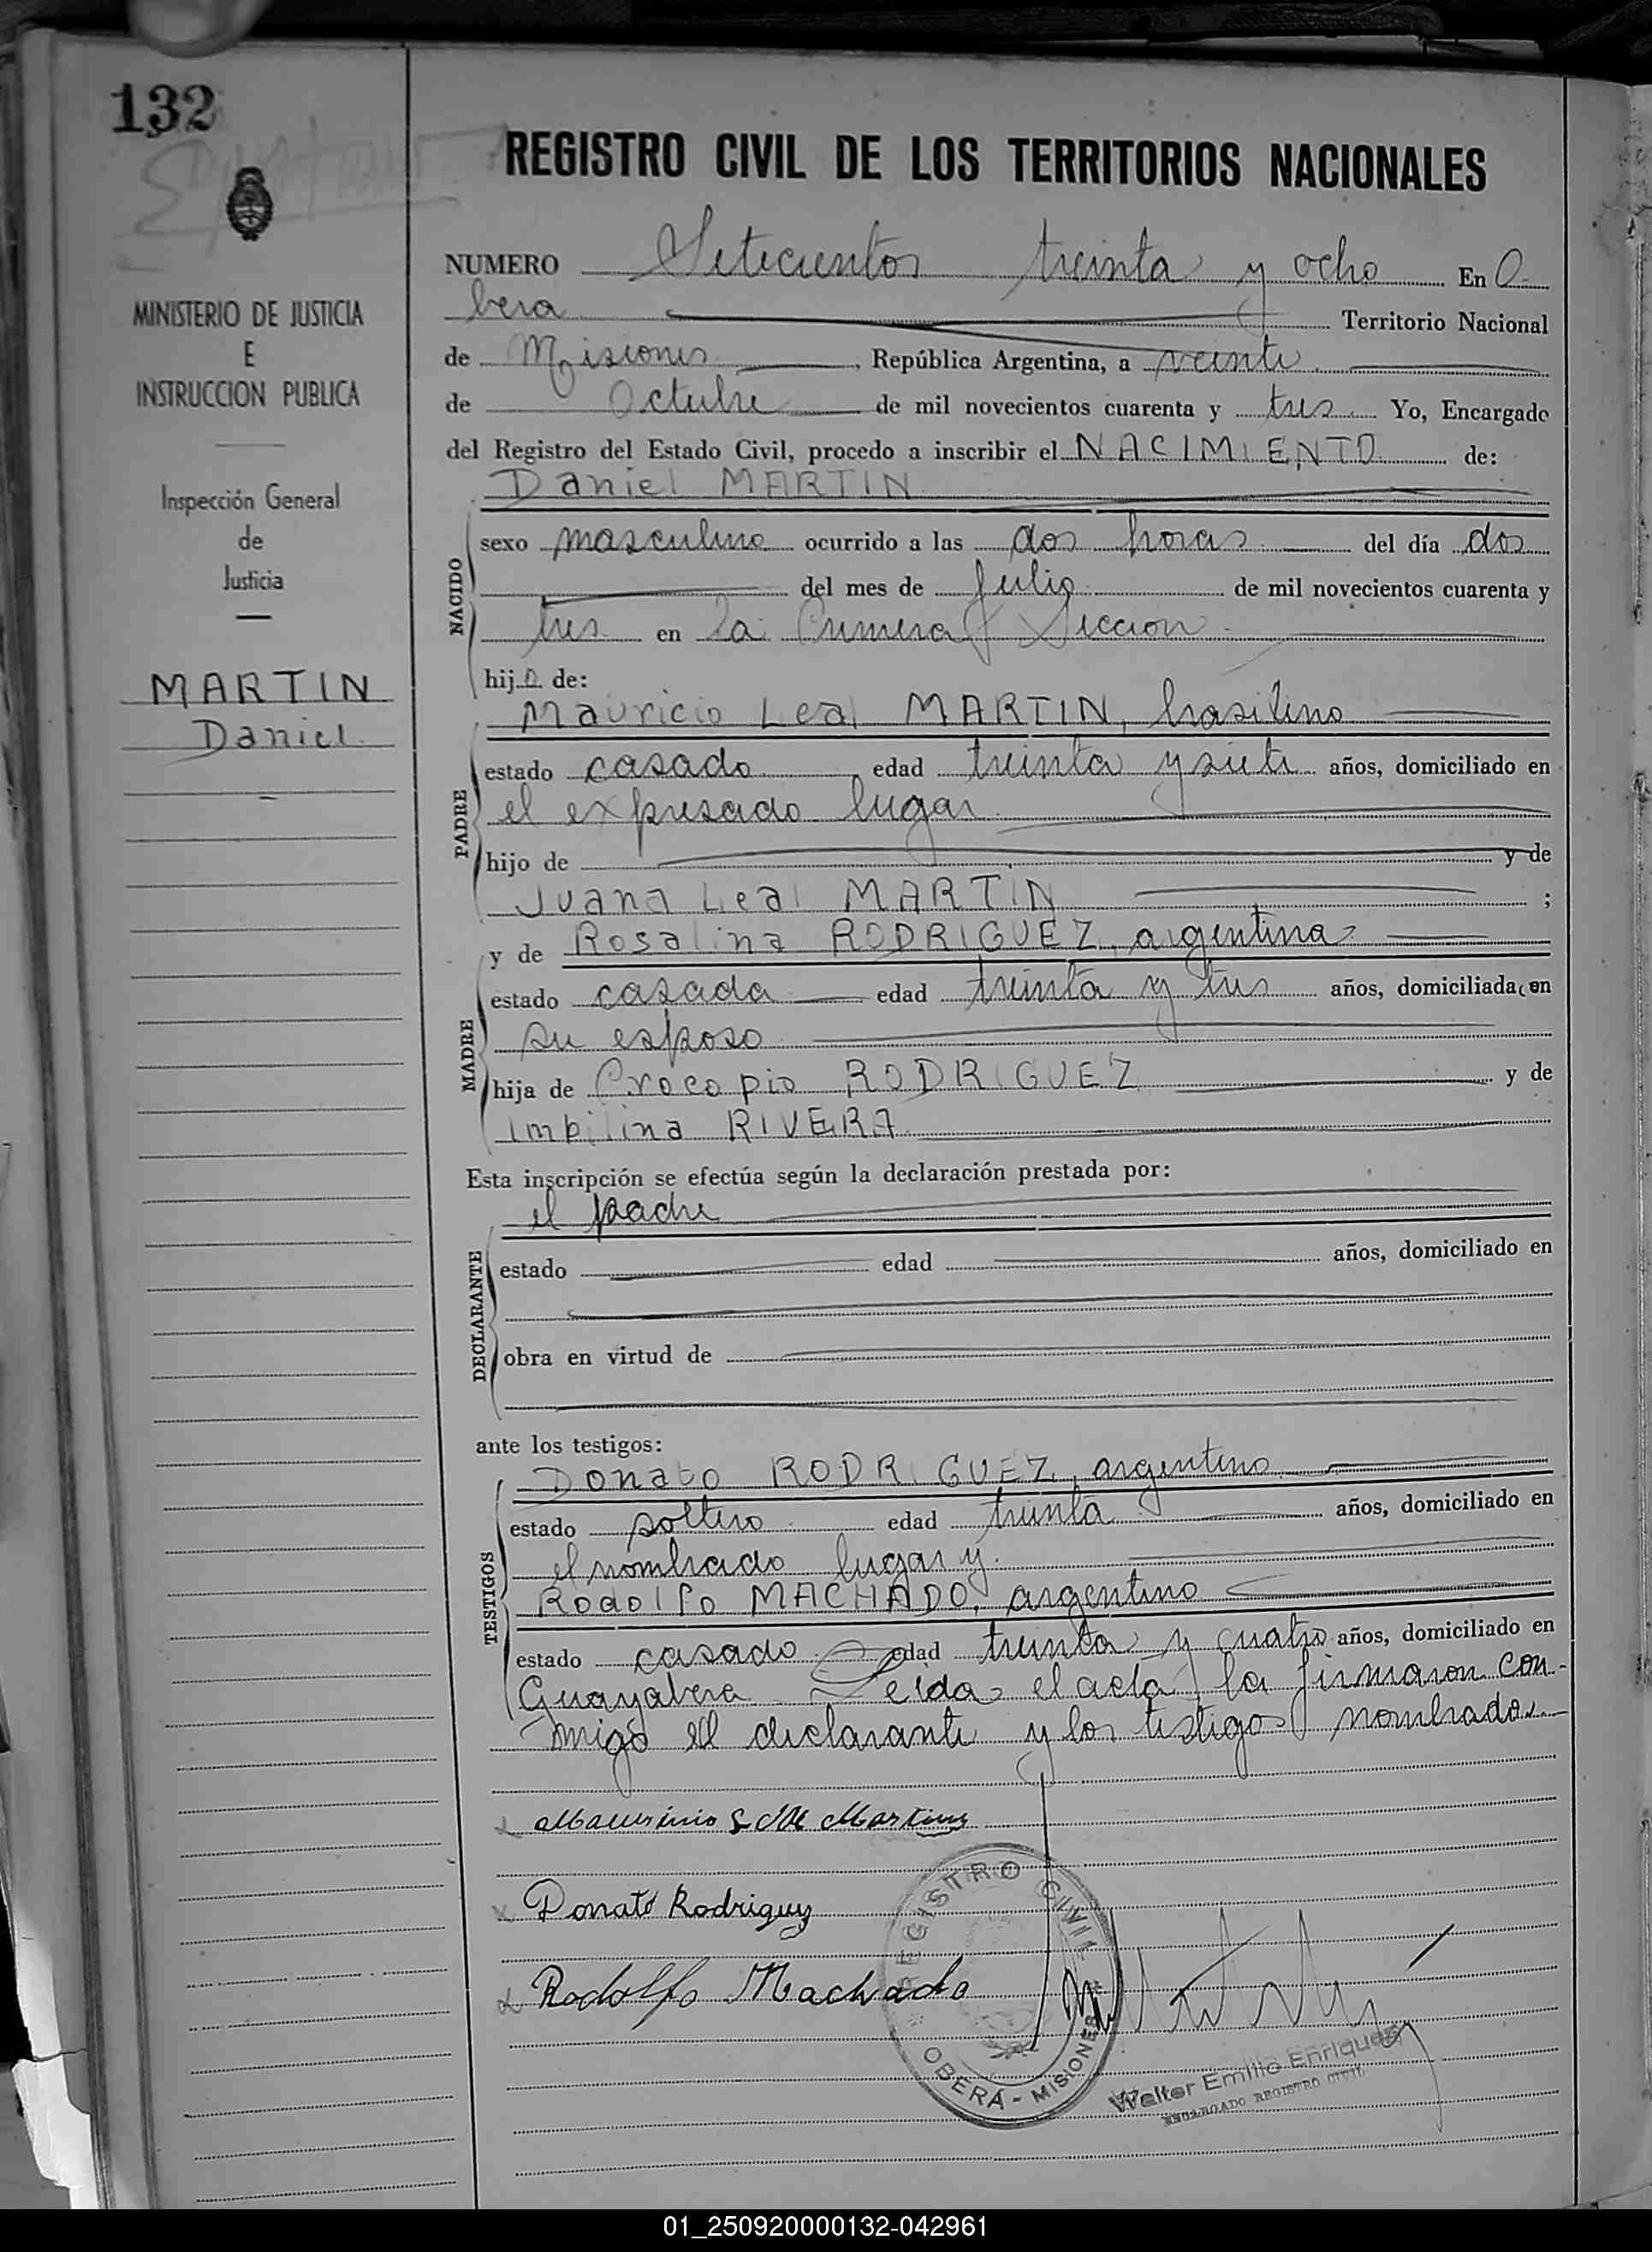 132
REGISTRO CIVIL DE LOS TERRITORIOS NACIONALES
MINISTERIO DE JUSTICIA
E
INSTRUCCION PUBLICA
Inspección General
de
Justicia
MARTIN
Daniel
NUMERO Setecientos treinta y ocho En O-
bera Territorio Nacional
de Misiones, República Argentina, a veinte
de Octubre de mil novecientos cuarenta y tres Yo, Encargado
del Registro del Estado Civil, procedo a inscribir el NACIMIENTO de:
NACIDO
Daniel MARTIN
sexo masculino ocurrido a las dos horas del día dos
del mes de Julio de mil novecientos cuarenta y
tres en la Primera Seccion
hijo de:
PADRE
Mauricio Leal MARTIN, brasileno
estado casado edad treinta y siete años, domiciliado en
el expresado lugar
hijo de y de
Juana Leal MARTIN ;
MADRE
y de Rosalina RODRIGUEZ, argentina
estado casada edad treinta y tres años, domiciliada con
su esposo
hija de Procopio RODRIGUEZ y de
Imbilina RIVERA
Esta inscripción se efectúa según la declaración prestada por:
DECLARANTE
el padre
estado edad años, domiciliado en
obra en virtud de
ante los testigos:
TESTIGOS
Donato RODRIGUEZ, argentino
estado soltero edad treinta años, domiciliado en
el nombrado lugar y
Rodolfo MACHADO, argentino
estado casado edad treinta y cuatro años, domiciliado en
Guayabera Leida el acta la firmaron con-
migo el declarante y los testigos nombrados
Martins
Donato Rodriguez
Rodolfo Machado
REGISTRO CIVIL
OBERÁ - MISIONES
Walter Emilio Enriquez
ENCARGADO REGISTRO CIVIL
01_250920000132-042961